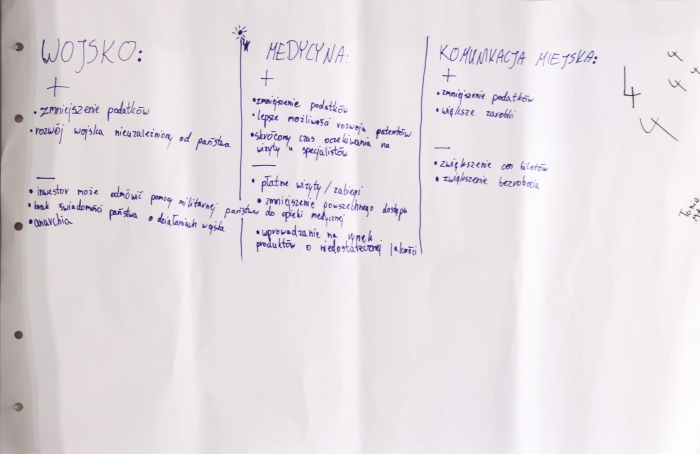 WOJSKO:
+
• zmniejszenie podatków
• rozwój wojska nieuzależniony od państwa
—
• inwestor może odmówić pomocy militarnej państwu
• brak świadomości państwa o działaniach wojska
• anarchia
MEDYCYNA:
+
• zmniejszenie podatków
• lepsze możliwości rozwoju patentów
• skrócony czas oczekiwania na
wizyty u specjalistów
—
• płatne wizyty / zabiegi
• zmniejszenie powszechnego dostępu
do opieki medycznej
• wprowadzanie na rynek
produktów o niedostatecznej jakości
KOMUNIKACJA MIEJSKA:
+
• zmniejszenie podatków
• większe zarobki
—
• zwiększenie cen biletów
• zwiększenie bezrobocia
4
4
4
4
4